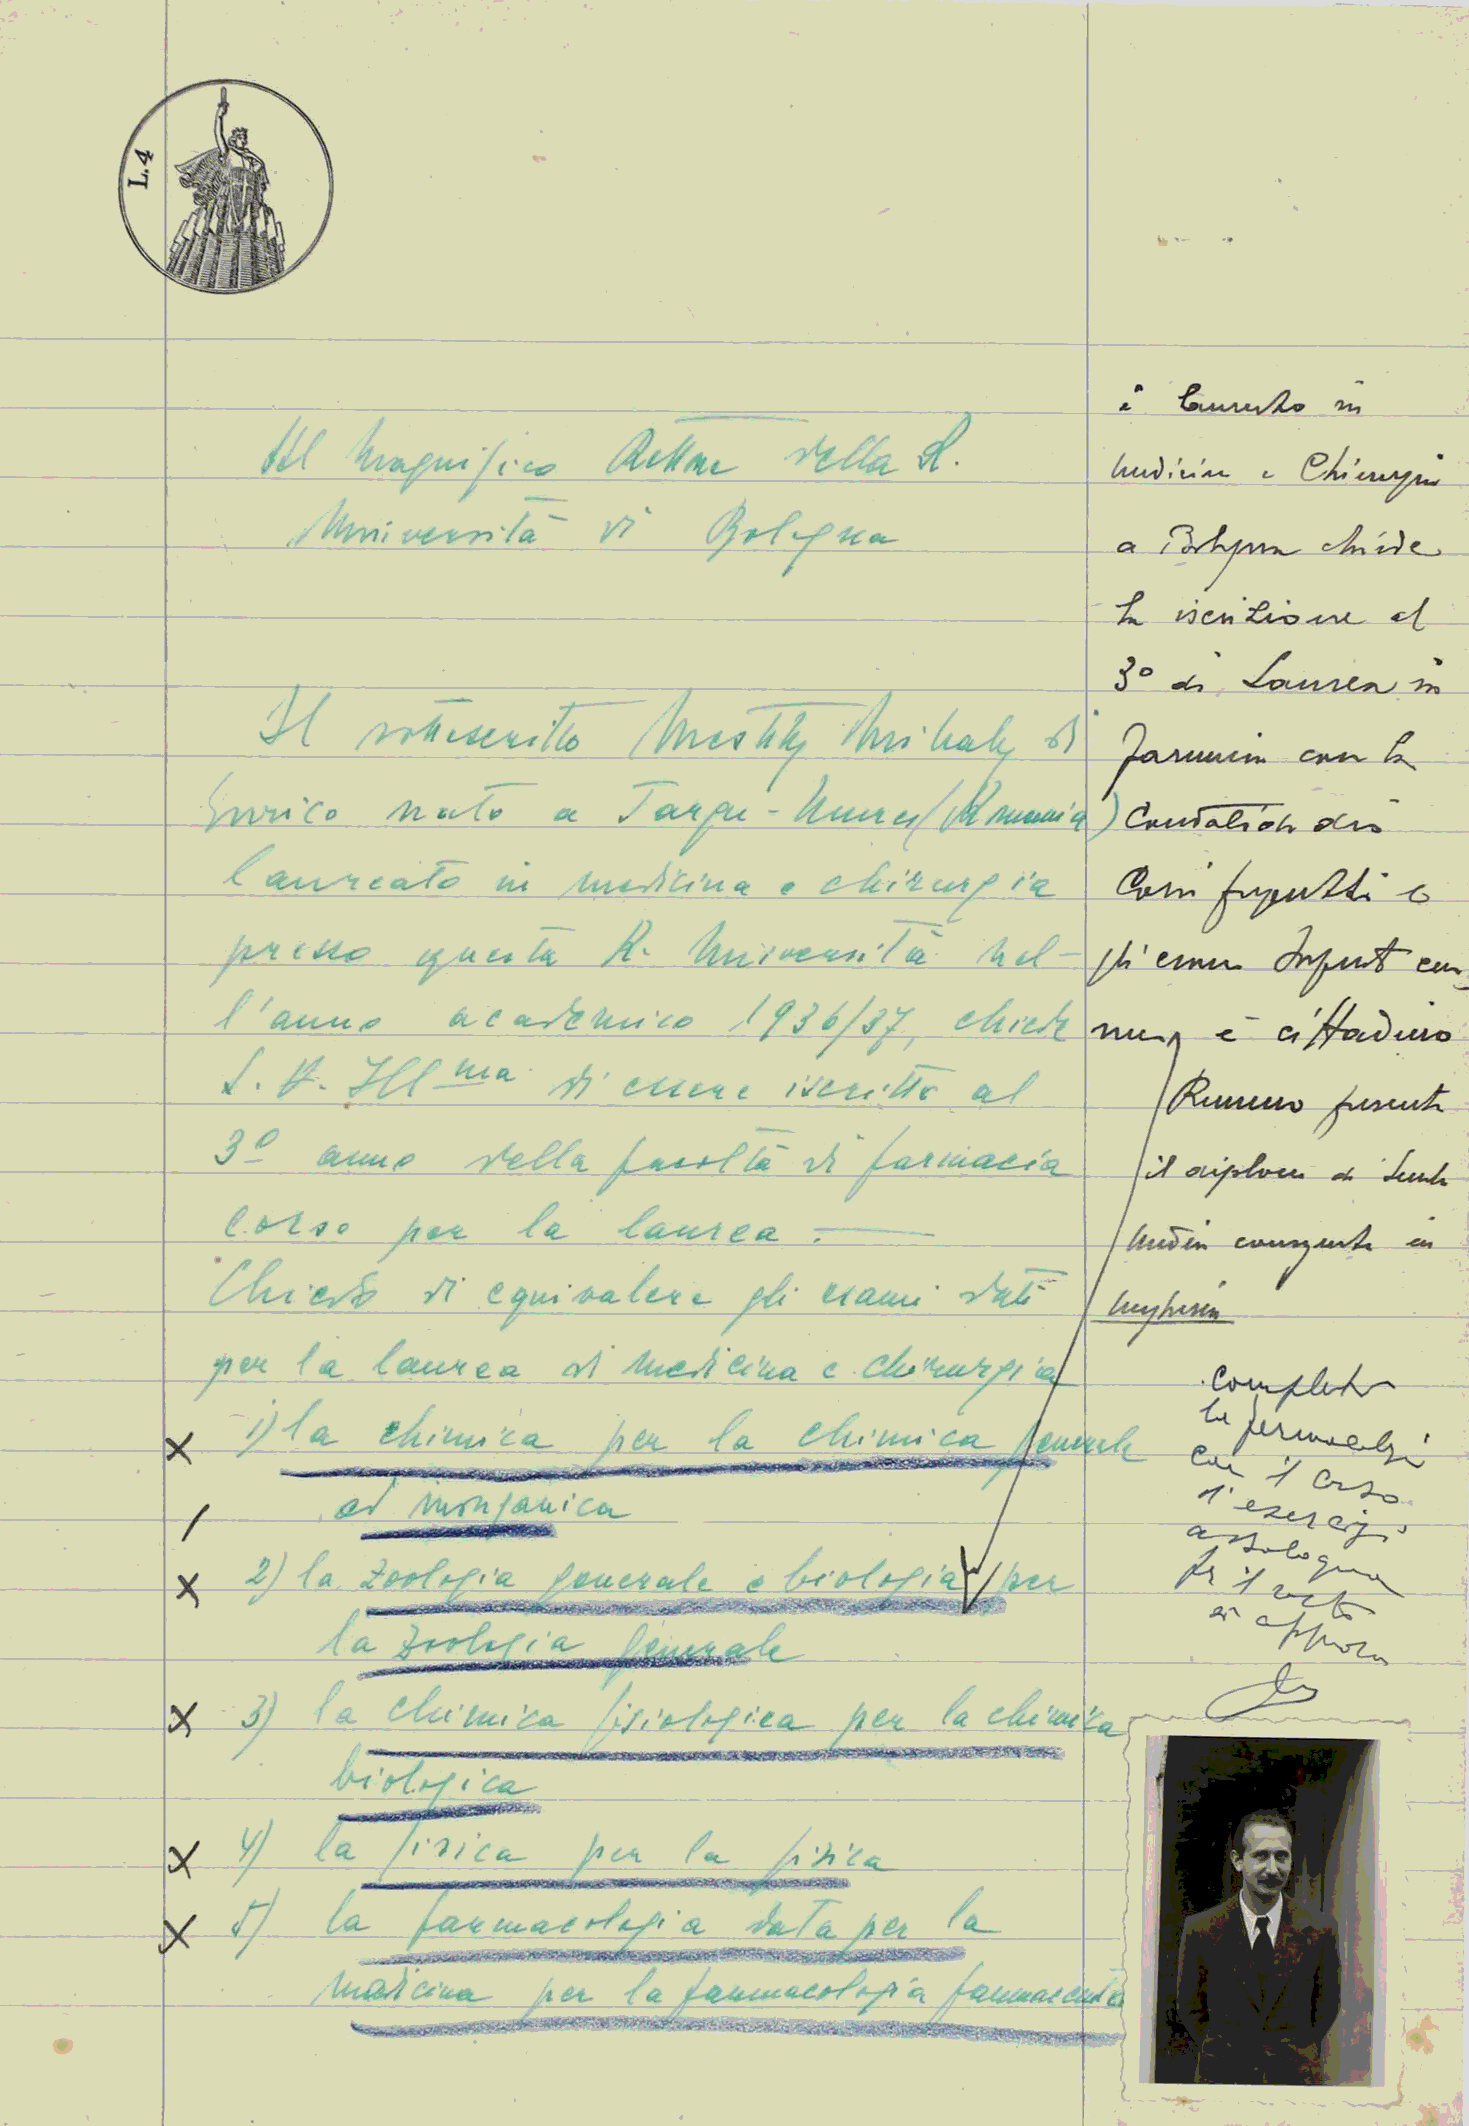 L.4
Al Magnifico Rettore della R.
Università di Bologna
Il sottoscritto Mihaly di
Enrico nato a Targu-Mures (Romania)
laureato in medicina e chirurgia
presso questa R. Università nel-
l'anno academico 1936/37, chiede
S. V. Ill ma di essere iscritto al
3º anno della facoltà di farmacia
corso per la laurea.
Chiede di equivalere gli esami dati
per la laurea di medicina e chirurgia
1) la chimica per la chimica generale
ed inorganica
2) la Zoologia generale e biologia per
la Zoologia generale
3) la chimica fisiologica per la chimica
biologica
4) la fisica per la fisica
5) la farmacologia data per la
medicina per la farmacologia
è laureato in
Medicina e Chirurgia
a Bologna chiede
la iscrizione al
3º di Laurea in
Farmacia con la
Corsi e
gli
è cittadino
Rumeno presenta
il diploma di
conseguita in
completi
la farmacologia
con il corso
d'esercizi
a Bologna
per il resto
si approva